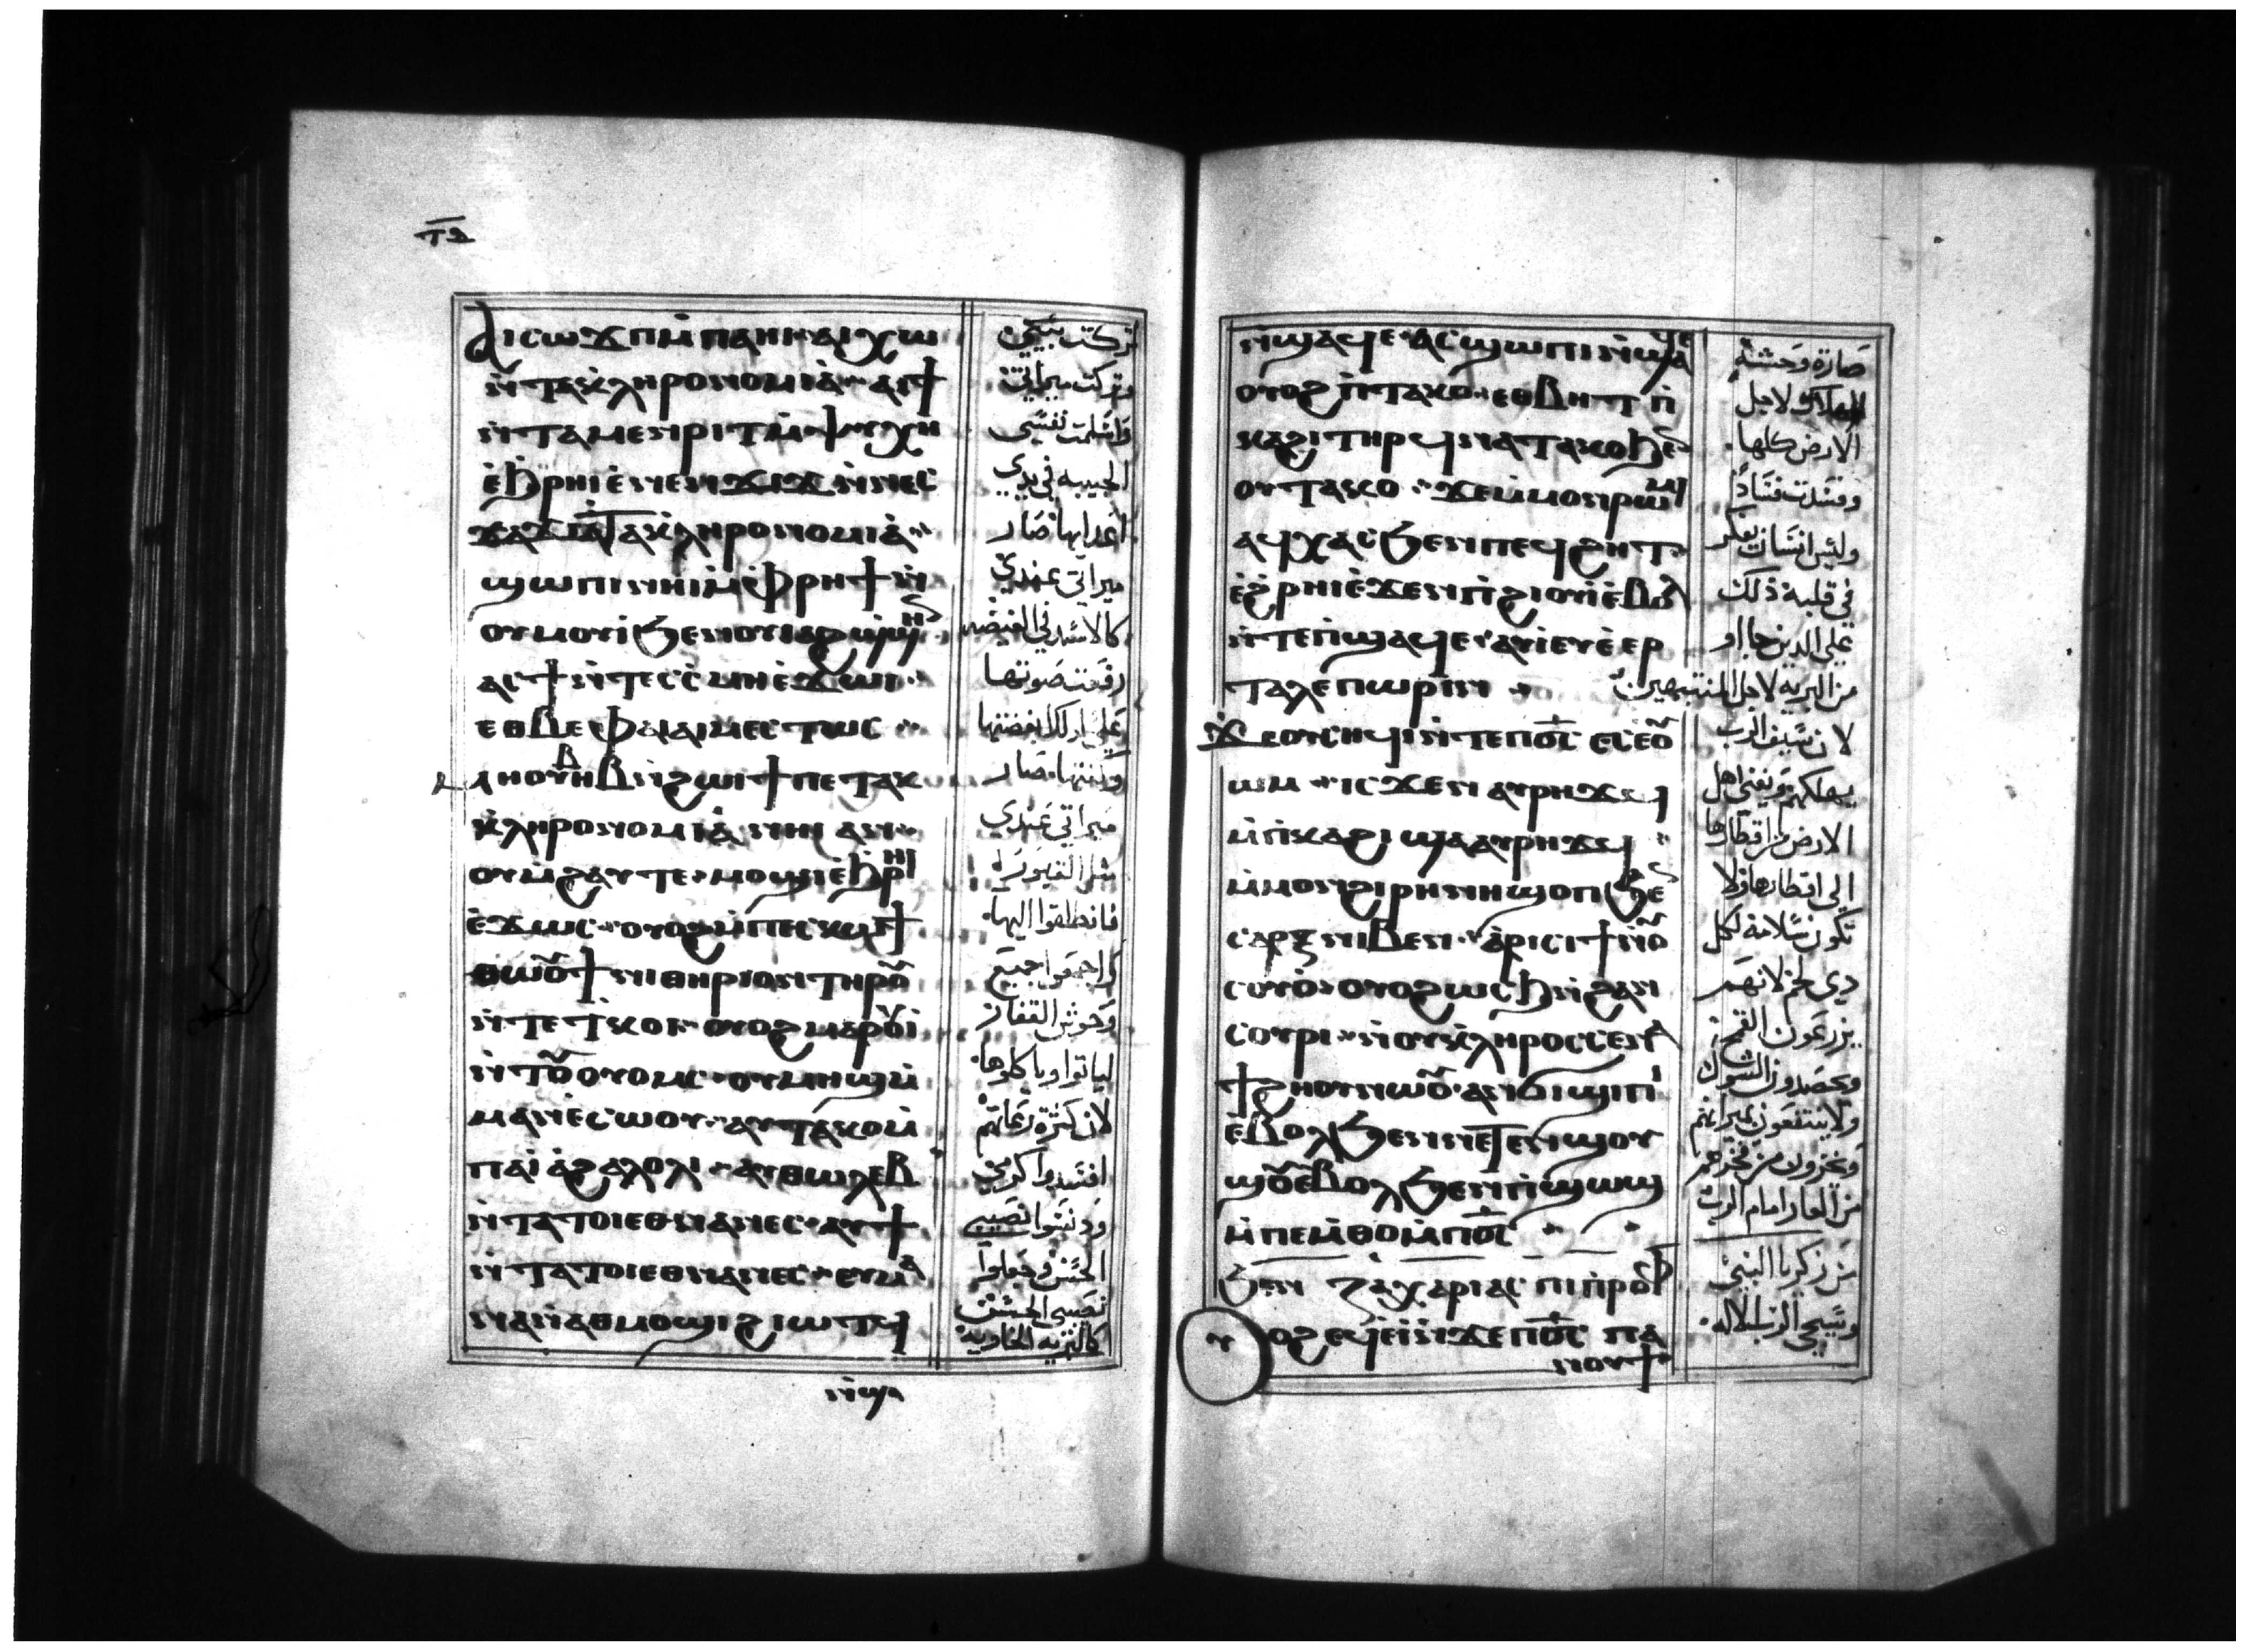 ⲧ︦ⲋ︦
ⲁⲓⲥⲱϫⲡ ⲙ̇ⲡⲁⲏⲓ ⲁⲓⲭⲱ
ⲛ̇ⲧⲁⲕ̇ⲗⲏⲣⲟⲛⲟⲙⲓⲁ̇ ⲁⲓϯ
ⲛ̇ⲧⲁⲙⲉⲛⲣⲓⲧ ⲙ̇ⲯⲩⲭⲏ
ⲉ̇ϧ̇ⲣⲏⲓ ⲉ̇ⲛⲉⲛϫⲓϫ ⲛ̇ⲛⲉⲥ
ϫⲁϫⲓ ⲁ̇ⲧⲁⲕ̇ⲗⲏⲣⲟⲛⲟⲙⲓⲁ̇
ϣⲱⲡⲓ ⲛⲏⲓ ⲙ̇ⲫⲣⲏϯ ⲛ̇
ⲟⲩⲙⲟⲩⲓ̇ ϧⲉⲛ ⲟⲩⲓⲁϩϣϣⲏⲛ
ⲁⲥϯ ⲛ̇ⲧⲉⲥⲥ̇ⲙⲏ ⲉ̇ϫⲱⲓ
ⲉⲑⲃⲉ ⲫⲁⲓ ⲁⲓⲙⲉⲥⲧⲱⲥ
ⲙⲏ ⲟⲩⲃⲏⲃ ⲛ̇ϩⲱⲓϯ ⲡⲉ ⲧⲁⲕ
ⲕ̇ⲗⲏⲣⲟⲛⲟⲙⲓⲁ̇ ⲛⲏⲓ ⲁⲛ
ⲟⲩⲙ̇ϩⲁⲩ ⲧⲉ ⲙⲟϣⲓ ⲉ̇ϧ̇ⲣⲏⲓ
ⲉ̇ϫⲱⲥ ⲟⲩⲟϩ ⲙ̇ⲡⲉⲥⲕⲱϯ
ⲑⲱⲟⲩϯ ⲛⲓⲑⲏⲣⲓⲟⲛ ⲧⲏⲣⲟⲩ
ⲛ̇ⲧⲉ ⲧ̇ⲕⲟⲓ ⲟⲩⲟϩ ⲙⲁⲣⲟⲩⲓ̇
ⲛ̇ⲧⲟⲩⲟⲩⲟⲙⲥ ⲟⲩⲙⲏϣ ⲙ̇
ⲙⲁⲛⲉ̇ⲥⲱⲟⲩ ⲁⲩⲧⲁⲕⲟ ⲙ̇
ⲡⲁⲓ̇ⲁ̇ϩⲁⲗⲟⲗⲓ ⲁⲩⲑⲱⲗⲉⲃ
ⲛ̇ⲧⲁⲧⲟⲓ ⲉⲑⲛⲁⲛⲉⲥ ⲁⲩϯ
ⲛ̇ⲧⲁⲧⲟⲓ ⲉⲑⲛⲁⲛⲉⲥ ⲉⲩⲙⲁ
ⲛⲁⲛⲁⲑⲙⲟϣⲓ ϩⲓⲱⲧϥ
ⲛ̇ϣⲁ
تركت بيتي
وتركت ميراثي
واسلمت نفسي
الحبيبه في يدي
اعدايها صار
ميراثي عندي
كالاسد في الغيضه
رفعت صوتها
علي لذلك ابغضتها
صار
ميراثي عندي
فانطلقوا اليها
واجمعوا جميع
وحوش القفار
لياتوا وياكلوها
لان كثرة رعاتهم
افسدوا كرمي
ودنسوا نصيبي
الحسن وجعلوا
نصيبي الحسن
كالبريه الخاويه
ⲛ̇ϣⲁϥⲉ ⲁⲥϣⲱⲡⲓ ⲛ̇ϣⲁϥⲉ
ⲟⲩⲟϩ ⲛ̇ⲧⲁⲕⲟ ⲉⲑⲃⲏⲧ ⲡ̇
ⲕⲁϩⲓ ⲧⲏⲣϥ ⲛⲁⲧⲁⲕⲟ ϧⲉⲛ
ⲟⲩⲧⲁⲕⲟ ϫⲉ ⲙ̇ⲙⲟⲛ ⲣⲱⲙⲓ
ⲁϥⲭⲁⲥ ϧⲉⲛ ⲡⲉϥϩⲏⲧ
ⲉ̇ϩ̇ⲣⲏⲓ ⲉ̇ϫⲉⲛ ⲡ̇ϩⲓⲟⲩⲓ̇ ⲉ̇ⲃⲟⲗ
ⲛ̇ⲧⲉ ⲡ̇ϣⲁϥⲉ ⲁⲩⲓ̇ ⲉⲩⲉ̇ⲉⲣ
ⲧⲁⲗⲉⲡⲱⲣⲓⲛ
ϫⲉ ⲟⲩⲥⲏϥⲓ ⲛ̇ⲧⲉ ⲡⲟ̅ⲥ̅ ⲉⲥⲉ̇ⲟⲩ
ⲱⲙ ⲓⲥϫⲉⲛ ⲁⲩⲣⲏϫϥ
ⲙ̇ⲡ̇ⲕⲁϩⲓ ϣⲁ ⲁⲩⲣⲏϫϥ
ⲙ̇ⲙⲟⲛ ϩⲓⲣⲏⲛⲏ ϣⲟⲡ ϧⲉⲛ
ⲥⲁⲣⲝ ⲛⲓⲃⲉⲛ ⲁ̇ⲣⲓⲥⲓϯ ⲛ̇ⲟⲩ
ⲥⲟⲩⲟ̇ ⲟⲩⲟϩ ⲱⲥϧ ⲛ̇ϩⲁⲛ
ⲥⲟⲩⲣⲓ ⲛⲟⲩⲕ̇ⲗⲏⲣⲟⲥ ⲥⲉⲛⲁ
ϯϩⲏⲟⲩ ⲛⲱⲟⲩ ⲁⲛ ϭⲓϣⲓⲡⲓ
ⲉ̇ⲃⲟⲗ ϧⲉⲛ ⲛⲉⲧⲉⲛϣⲟⲩ
ϣⲟⲩ ⲉ̇ⲃⲟⲗ ϧⲉⲛ ⲡ̇ϣⲱϣ
ⲙ̇ⲡⲉⲙ̇ⲑⲟ ⲙ̇ⲡⲟ̅ⲥ̅
ϧⲉⲛ ⲍⲁⲭⲁⲣⲓⲁⲥ ⲡⲓⲡ̇ⲣⲟⲫ
ⲟⲩⲟϩ ⲉϥⲉ̇ⲓ̇ ⲛ̇ϫⲉ ⲡⲟ̅ⲥ̅ ⲡⲁ
ⲛⲟⲩϯ
صارة وحشة
الهلاك لاجل
الارض كلها
وفسدت فسادا
وليس انسان يفكر
في قلبه ذلك
علي الذين جااو
من البريه لاجل المنتهبين
لان سيف الرب
يهلكهم ويفني اهل
الارض من اقطارها
الي اقطارها ولا
تكون سلامه لكل
دي لحم لانهم
يزرعون القمح
ويحصدون الشوك
ولا ينتفعون بميراثهم
ويخزون من فخرهم
من العار امام الرب
من زكريا النبي
ويجي الرب الاله